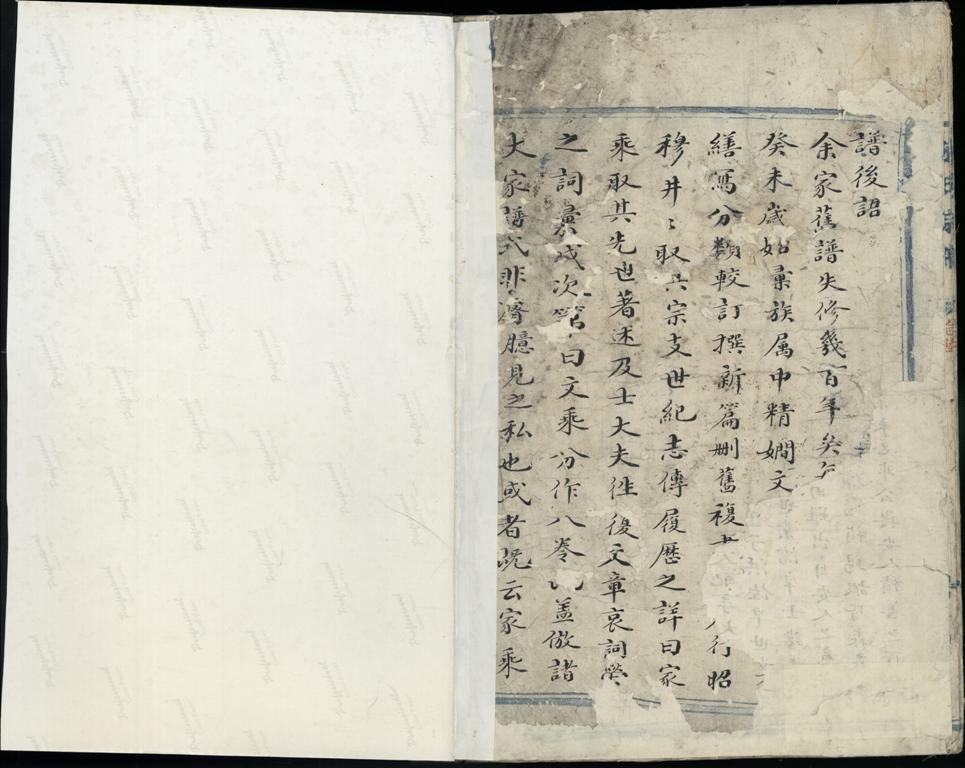 譜後語
余家舊譜失修幾百年矣
癸未歲始彙族属中精嫻文
繕寫分類較訂撰新篇删舊複
行昭
穆井〻取其宗支世紀志傳履歷之詳曰家
乘取其先世著述及士大夫徃後文章哀詞
之詞彙成次第曰文乘分作八卷
盖倣諸
大家譜式非
臆見之私也或者
云家乘